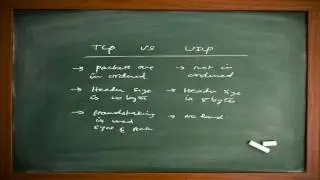 TCP vs UDP
→ packets are in ordered
→ not in ordered
→ Header size is 20 bytes
→ Header size is 8 bytes
→ Handshaking is used
→ no hand